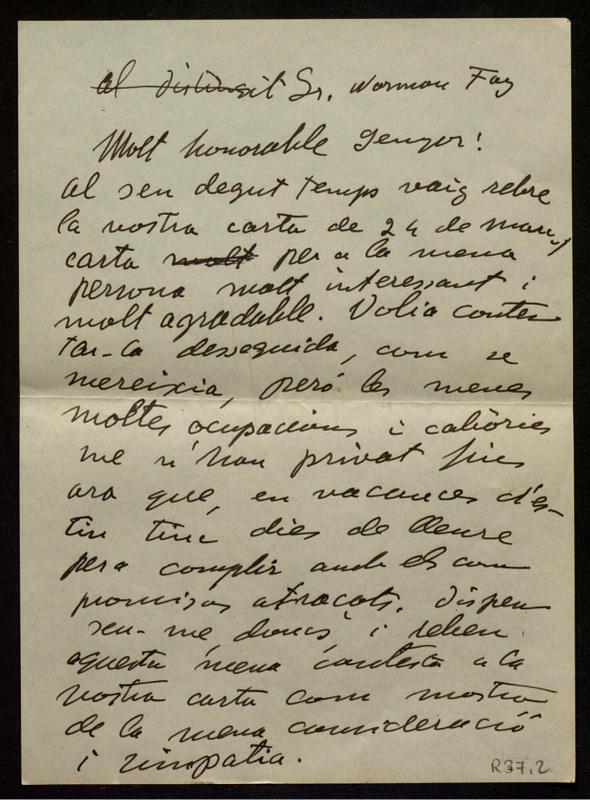 al distingit Sr. Norman Foy
Molt honorable Senyor!
al seu degut temps vaig rebre
la vostra carta de 24 de març
carta molt per a la meva
persona molt interessant i
molt agradable. Volia contes
tar-la desseguida, com se
mereixia, però les meves
moltes ocupacions i cabòries
me n'han privat fins
ara que, en vacances d'es-
tiu tinc dies de lleure
pera complir amb els com
promisos atracats. Dispen
seu-me, doncs, i rebeu
aquesta meva contesta a la
vostra carta com mostra
de la meva consideració
i simpatia.
R37,2